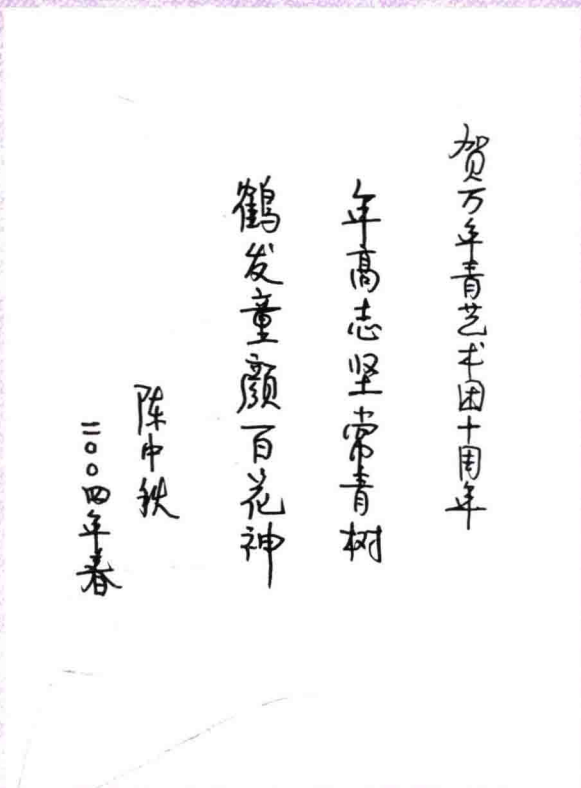 贺万年青艺术团十周年
年高志坚常青树
鹤发童颜百花神
陈中秋
二〇〇四年春